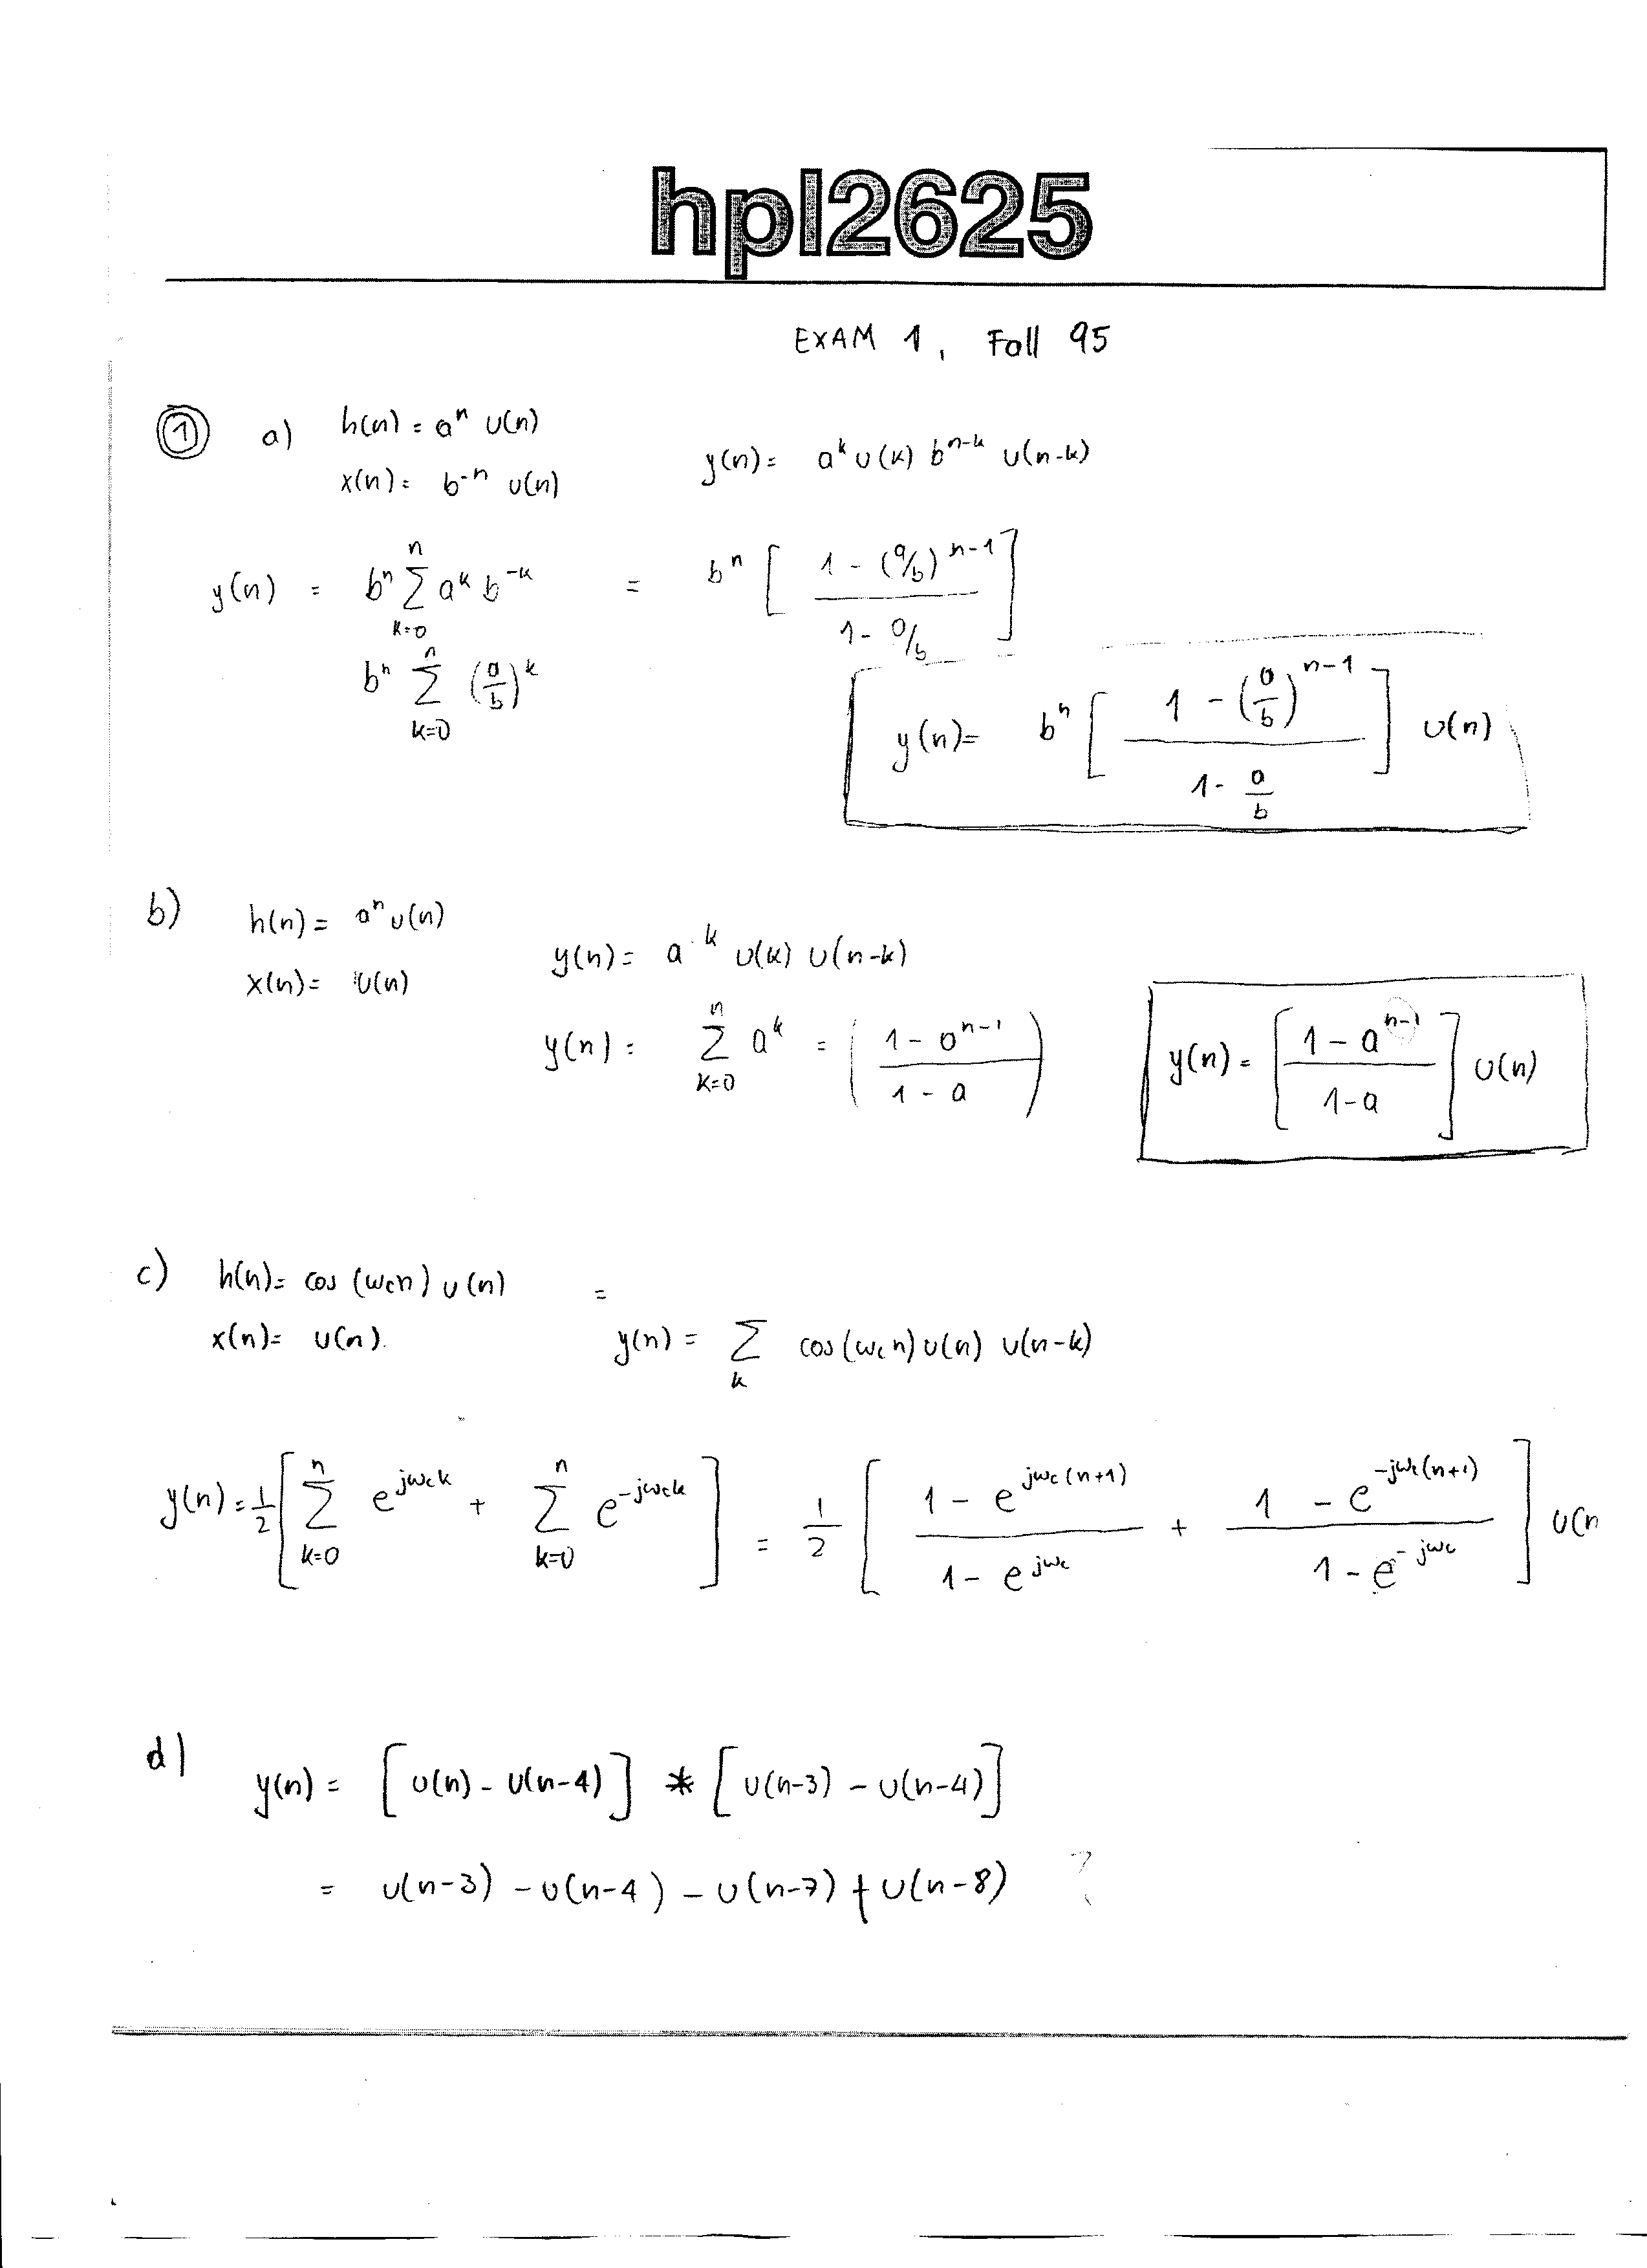 hpl2625
EXAM 1, Fall 95
① a) h(n) = aⁿ u(n)
x(n) = b⁻ⁿ u(n)
y(n) = a^k u(k) b^(n-k) u(n-k)
y(n) = bⁿ Σ_{k=0}^{n} a^k b^(-k) = bⁿ [ (1 - (a/b)^(n-1)) / (1 - a/b) ]
bⁿ Σ_{k=0}^{n} (a/b)^k
y(n) = bⁿ [ (1 - (a/b)^(n-1)) / (1 - a/b) ] u(n)
b) h(n) = aⁿ u(n)
x(n) = u(n)
y(n) = a^k u(k) u(n-k)
y(n) = Σ_{k=0}^{n} a^k = ( (1 - a^(n-1)) / (1 - a) )
y(n) = [ (1 - a^(n-1)) / (1-a) ] u(n)
c) h(n) = cos (ωcn) u(n) =
x(n) = u(n).
y(n) = Σ_k cos(ωcn) u(n) u(n-k)
y(n) = 1/2 [ Σ_{k=0}^{n} e^(jωck) + Σ_{k=0}^{n} e^(-jωck) ] = 1/2 [ (1 - e^(jωc(n+1))) / (1 - e^(jωc)) + (1 - e^(-jωc(n+1))) / (1 - e^(-jωc)) ] u(n
d) y(n) = [ u(n) - u(n-4) ] * [ u(n-3) - u(n-4) ]
= u(n-3) - u(n-4) - u(n-7) + u(n-8) ?